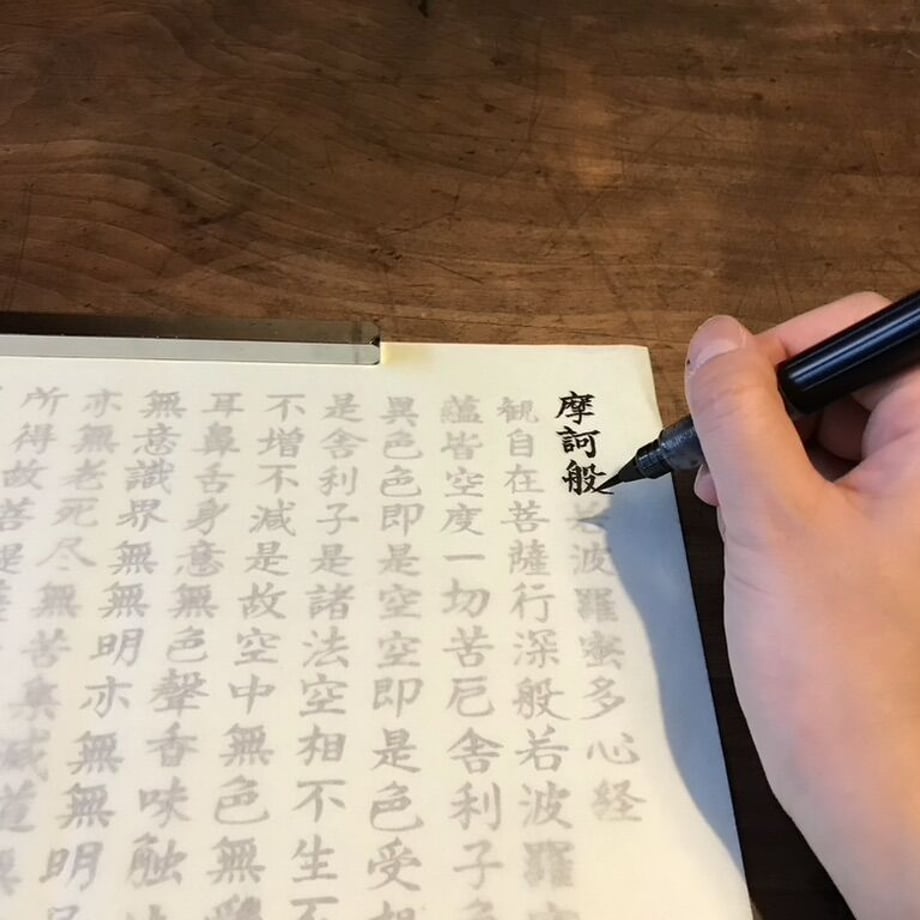 摩訶般若波羅蜜多心経
観自在菩薩行深般若波羅
蘊皆空度一切苦厄舎利子色
異色色即是空空即是色受想
是舎利子是諸法空相不生不
不増不減是故空中無色無受
耳鼻舌身意無色聲香味触法
無意識界無無明亦無無明
亦無老死尽無苦集滅道無
所得故菩提